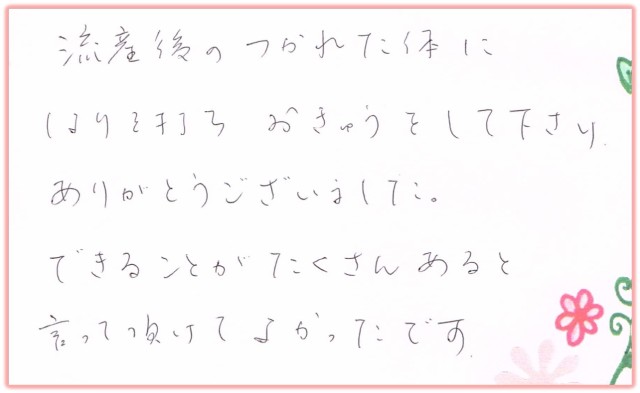 流産後のつかれた体に
はりを打ち おきゅうをして下さり
ありがとうございました。
できることがたくさんあると
言って頂けてよかったです